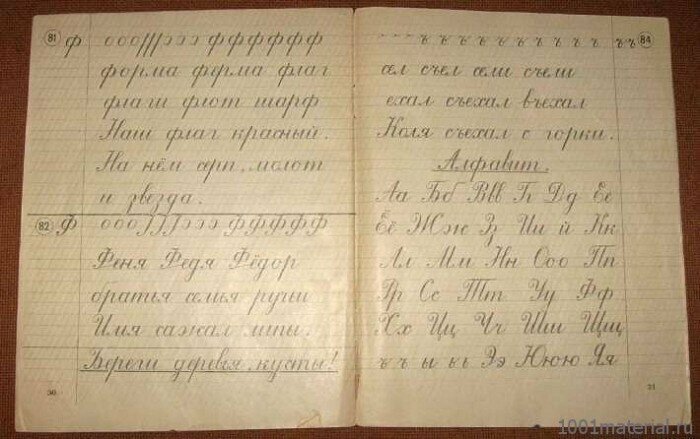 81 ф оооſſſэээ ффффффф
форма фирма флаг
флаги флот шарф
Наш флаг красный.
На нём серп, молот
и звезда.
82 Ф ооо эээ ФФФФФ
Феня Федя Фёдор
братья семья ручьи
Илья сажал липы.
Береги деревья, кусты!
30
ъ ъ ъ ъ ъ ъ ъ ъ ъ ъ ъъ 84
сел съел сели съели
ехал съехал въехал
Коля съехал с горки.
Алфавит.
Аа Бб Ввв Гг Дд Её
Её Жж Зз Ии й Кк
Лл Мм Нн Ооо Пп
Рр Сс Тт Уу Фф
Хх Цц Чч Шш Щщ
ъъ ы ьь Ээ Ююю Яя
31
1001material.ru